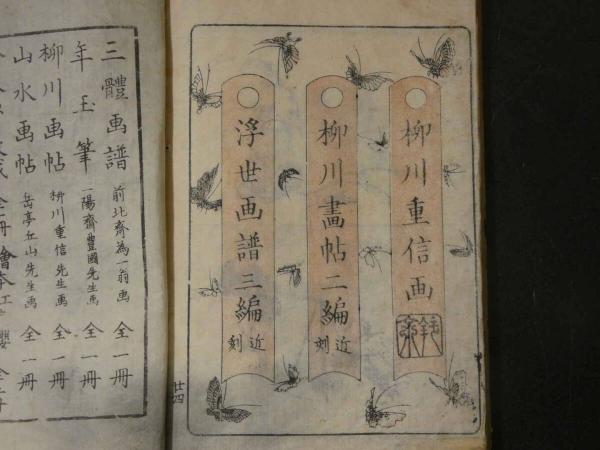 柳川重信画
柳川畫帖二編
近刻
浮世画譜三編
近刻
廿四
三體画譜 前北斎為一翁画 全一冊
年玉筆 一陽齋豊國先生画 全一冊
柳川画帖 柳川重信先生画 全一冊
山水画帖 岳亭丘山先生画 全一冊